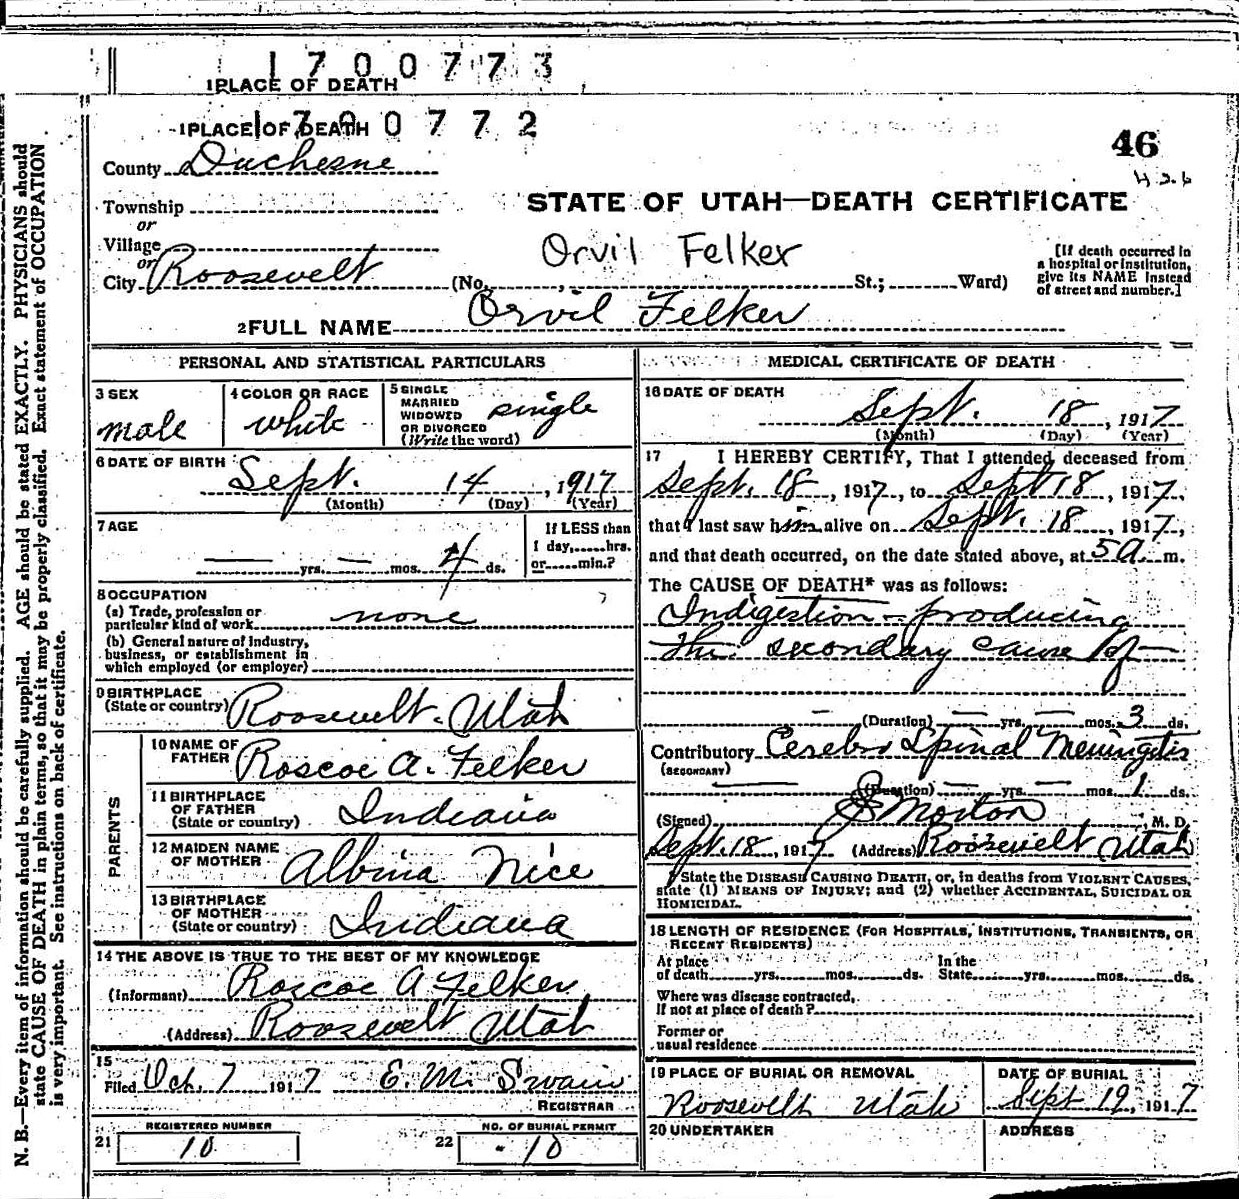 1700773
1 PLACE OF DEATH
1700772
1 PLACE OF DEATH
46
County Duchesne
Township
STATE OF UTAH—DEATH CERTIFICATE
or
Village
Orvil Felker
or
City Roosevelt (No. , St.; Ward)
[If death occurred in
a hospital or institution,
give its NAME instead
of street and number.]
2 FULL NAME Orvil Felker
PERSONAL AND STATISTICAL PARTICULARS
3 SEX
male
4 COLOR OR RACE
white
5 SINGLE
MARRIED
WIDOWED
OR DIVORCED
(Write the word)
single
6 DATE OF BIRTH
Sept. 14, 1917
(Month) (Day) (Year)
7 AGE
— yrs. — mos. 4 ds.
If LESS than
1 day,......hrs.
or......min.?
8 OCCUPATION
(a) Trade, profession or
particular kind of work none
(b) General nature of industry,
business, or establishment in
which employed (or employer)
9 BIRTHPLACE
(State or country) Roosevelt. Utah
PARENTS
10 NAME OF
FATHER Roscoe A. Felker
11 BIRTHPLACE
OF FATHER
(State or country) Indiana
12 MAIDEN NAME
OF MOTHER Albina Nice
13 BIRTHPLACE
OF MOTHER
(State or country) Indiana
14 THE ABOVE IS TRUE TO THE BEST OF MY KNOWLEDGE
(Informant) Roscoe A Felker
(Address) Roosevelt Utah
15
Filed Oct. 7 1917 E. M. Swain
REGISTRAR
REGISTERED NUMBER
21 10
NO. OF BURIAL PERMIT
22 10
MEDICAL CERTIFICATE OF DEATH
16 DATE OF DEATH
Sept. 18, 1917
(Month) (Day) (Year)
17 I HEREBY CERTIFY, That I attended deceased from
Sept. 18, 1917, to Sept 18, 1917,
that I last saw him alive on Sept. 18, 1917,
and that death occurred, on the date stated above, at 5 a. m.
The CAUSE OF DEATH* was as follows:
Indigestion — producing
the secondary cause of —
— (Duration) — yrs. — mos. 3 ds.
Contributory Cerebro Spinal Meningitis
(SECONDARY)
(Duration) — yrs. — mos. 1 ds.
(Signed) Morton, M. D.
Sept. 18, 1917 (Address) Roosevelt Utah
State the DISEASE CAUSING DEATH, or, in deaths from VIOLENT CAUSES,
state (1) MEANS OF INJURY; and (2) whether ACCIDENTAL, SUICIDAL OR
HOMICIDAL.
18 LENGTH OF RESIDENCE (FOR HOSPITALS, INSTITUTIONS, TRANSIENTS, OR
RECENT RESIDENTS)
At place
of death......yrs......mos......ds.
In the
State......yrs......mos......ds.
Where was disease contracted,
If not at place of death?
Former or
usual residence
19 PLACE OF BURIAL OR REMOVAL
Roosevelt Utah
DATE OF BURIAL
Sept 19, 1917
20 UNDERTAKER
ADDRESS
N. B.—Every item of information should be carefully supplied. AGE should be stated EXACTLY. PHYSICIANS should
state CAUSE OF DEATH in plain terms, so that it may be properly classified. Exact statement of OCCUPATION
is very important. See instructions on back of certificate.